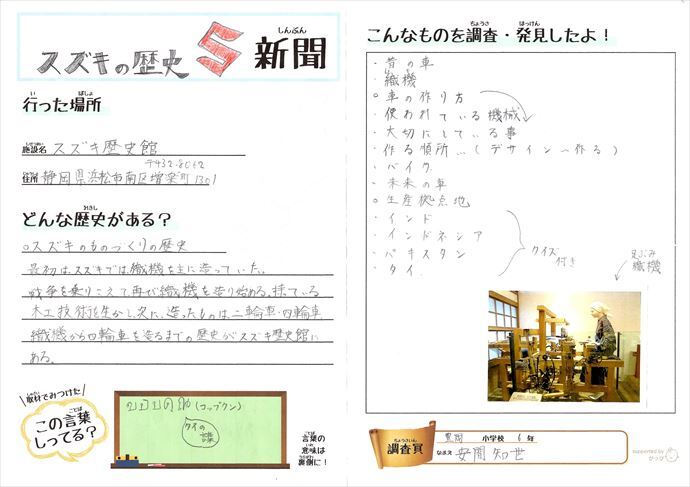 スズキの歴史
新聞
しんぶん
行った場所
い ばしょ
施設名 スズキ歴史館
しせつめい
〒432-8062
住所 静岡県浜松市南区増楽町1301
じゅうしょ
どんな歴史がある?
れきし
○スズキのものづくりの歴史
最初はスズキでは織機を主に造っていた。
戦争を乗りこえて再び織機を造り始める。
木工技術を生かし次に、造ったものは二輪車・四輪車
織機から四輪車を造るまでの歴史がスズキ歴史館に
ある。
取材でみつけた!
しゅざい
この言葉
ことば
しってる?
(コップクン)
タイの
言葉の
ことば
意味は
いみ
裏側に!
うらがわ
こんなものを調査・発見したよ!
ちょうさ はっけん
・昔の車
・織機
○車の作り方
・使われている機械
・大切にしている事
・作る順所…(デザイン〜作る)
・バイク
・未来の車
○生産拠点地
・インド
・インドネシア
・パキスタン
・タイ
クイズ
付き
足ぶみ
織機
調査員
ちょうさいん
小学校 6年
なまえ 安間 知世
supported by